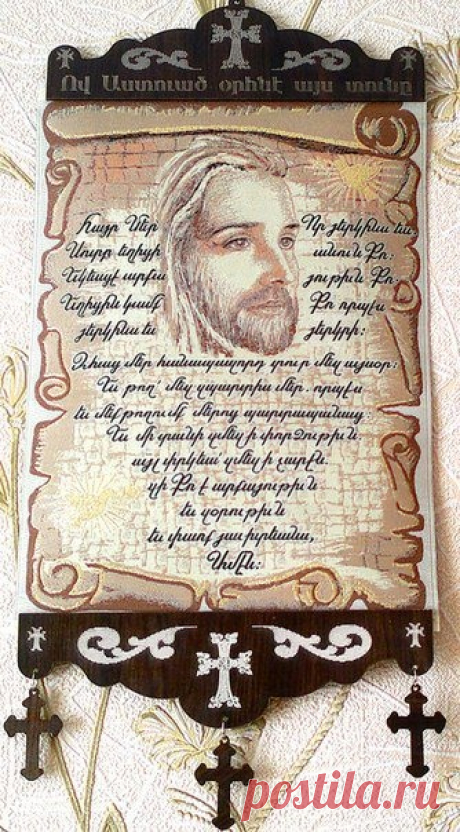 Ով Աստուած օրհնէ այս տունը
Հայր Մեր Որ յերկինս ես,
Սուրբ եղիցի անուն Քո:
Եկեսցէ արքա յութիւն Քո:
Եղիցին կամք Քո որպէս
յերկինս եւ յերկրի:
Զհաց մեր հանապազորդ տուր մեզ այսօր:
Եւ թող՝ մեզ զպարտիս մեր. որպէս
եւ մեք թողումք մերոց պարտապանաց:
Եւ մի տանի զմեզ ի փորձութիւն.
այլ փրկեա՝ զմեզ ի չարէն.
զի Քո է արքայութիւն
եւ զօրութիւն
եւ փառք յաւիտեանս,
Ամէն:
postila.ru